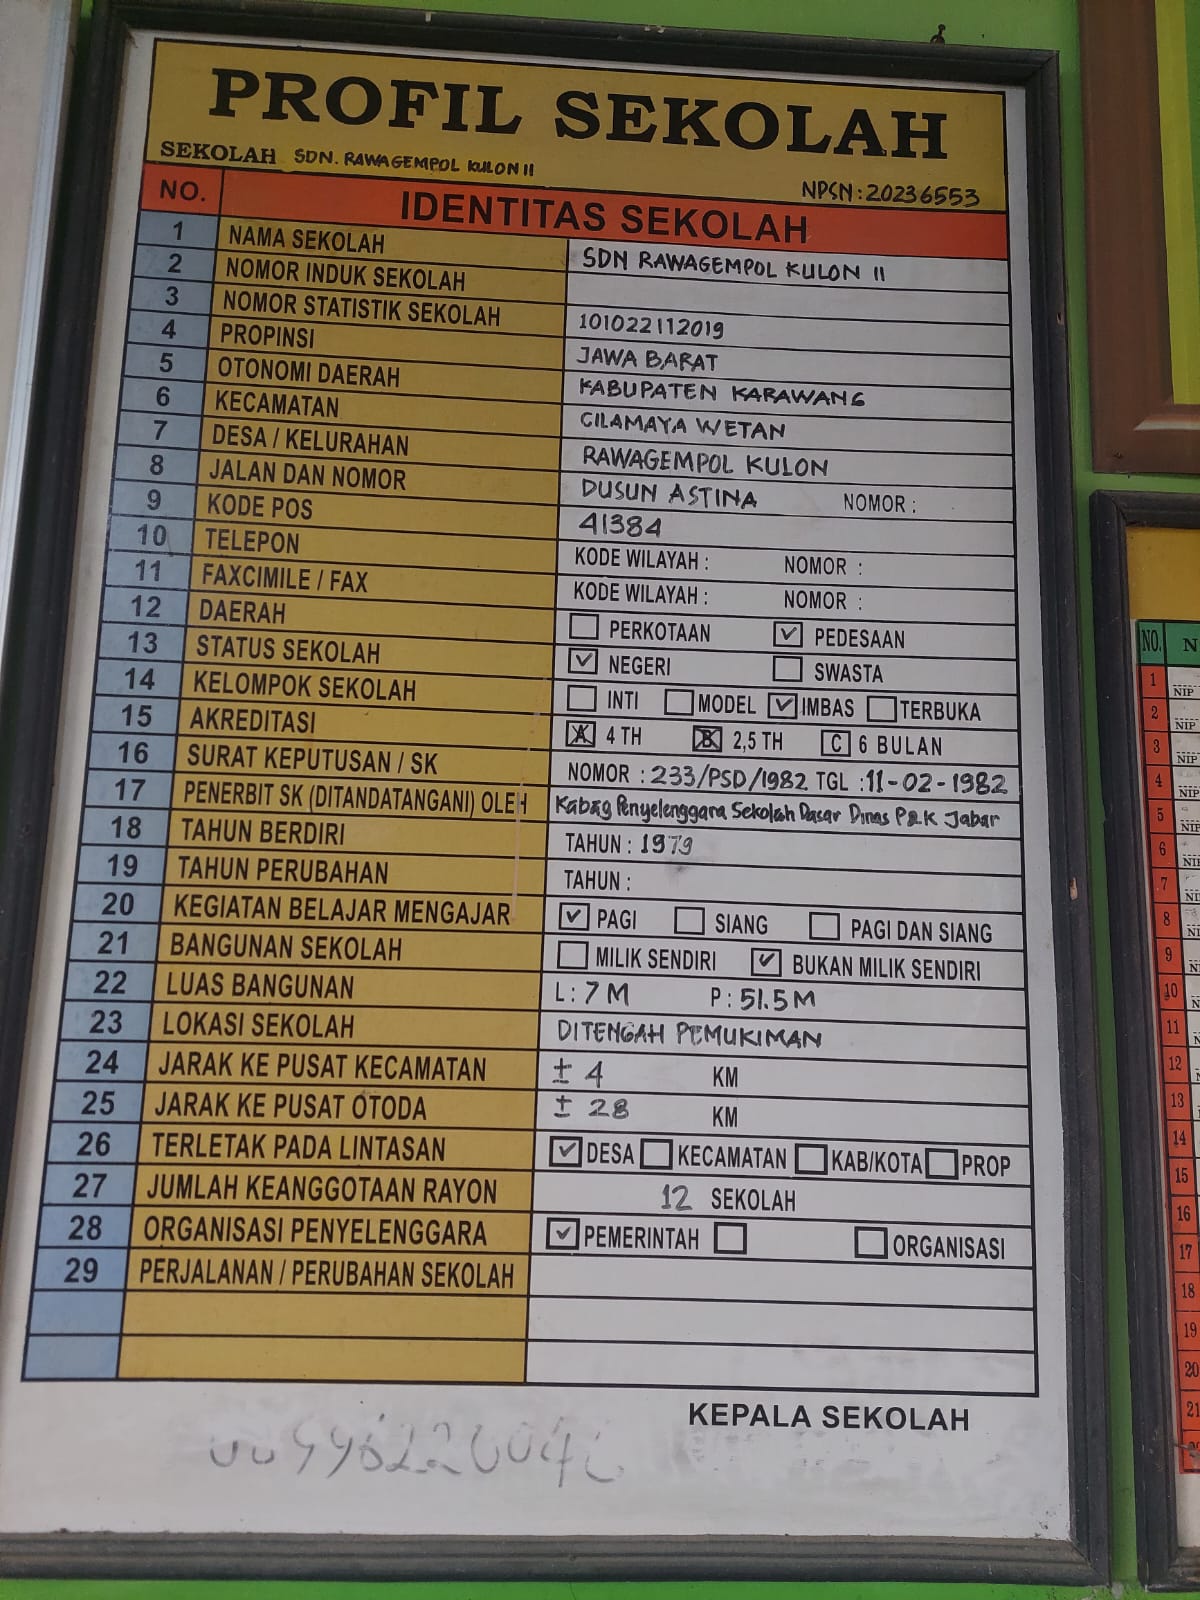 PROFIL SEKOLAH
SEKOLAH SDN. RAWAGEMPOL KULON II
NPSN: 20236553
NO. IDENTITAS SEKOLAH
1 NAMA SEKOLAH SDN RAWAGEMPOL KULON II
2 NOMOR INDUK SEKOLAH
3 NOMOR STATISTIK SEKOLAH 101022112019
4 PROPINSI JAWA BARAT
5 OTONOMI DAERAH KABUPATEN KARAWANG
6 KECAMATAN CILAMAYA WETAN
7 DESA / KELURAHAN RAWAGEMPOL KULON
8 JALAN DAN NOMOR DUSUN ASTINA NOMOR :
9 KODE POS 41384
10 TELEPON KODE WILAYAH : NOMOR :
11 FAXCIMILE / FAX KODE WILAYAH : NOMOR :
12 DAERAH PERKOTAAN ✓ PEDESAAN
13 STATUS SEKOLAH ✓ NEGERI SWASTA
14 KELOMPOK SEKOLAH INTI MODEL ✓ IMBAS TERBUKA
15 AKREDITASI A 4 TH B 2,5 TH C 6 BULAN
16 SURAT KEPUTUSAN / SK NOMOR : 233/PSD/1982 TGL : 11-02-1982
17 PENERBIT SK (DITANDATANGANI) OLEH Kabag Penyelenggara Sekolah Dasar Dinas P&K Jabar
18 TAHUN BERDIRI TAHUN : 1979
19 TAHUN PERUBAHAN TAHUN :
20 KEGIATAN BELAJAR MENGAJAR ✓ PAGI SIANG PAGI DAN SIANG
21 BANGUNAN SEKOLAH MILIK SENDIRI ✓ BUKAN MILIK SENDIRI
22 LUAS BANGUNAN L : 7 M P : 51.5 M
23 LOKASI SEKOLAH DITENGAH PEMUKIMAN
24 JARAK KE PUSAT KECAMATAN ± 4 KM
25 JARAK KE PUSAT OTODA ± 28 KM
26 TERLETAK PADA LINTASAN ✓ DESA KECAMATAN KAB/KOTA PROP
27 JUMLAH KEANGGOTAAN RAYON 12 SEKOLAH
28 ORGANISASI PENYELENGGARA ✓ PEMERINTAH ORGANISASI
29 PERJALANAN / PERUBAHAN SEKOLAH
KEPALA SEKOLAH
NO. N
1 NIP
2 NIP
3 NIP
4 NIP
5 NIP
6 NI
7 NI
8 N
9 N
10 N
11
12
13
14
15
16
17
18
19
20
21